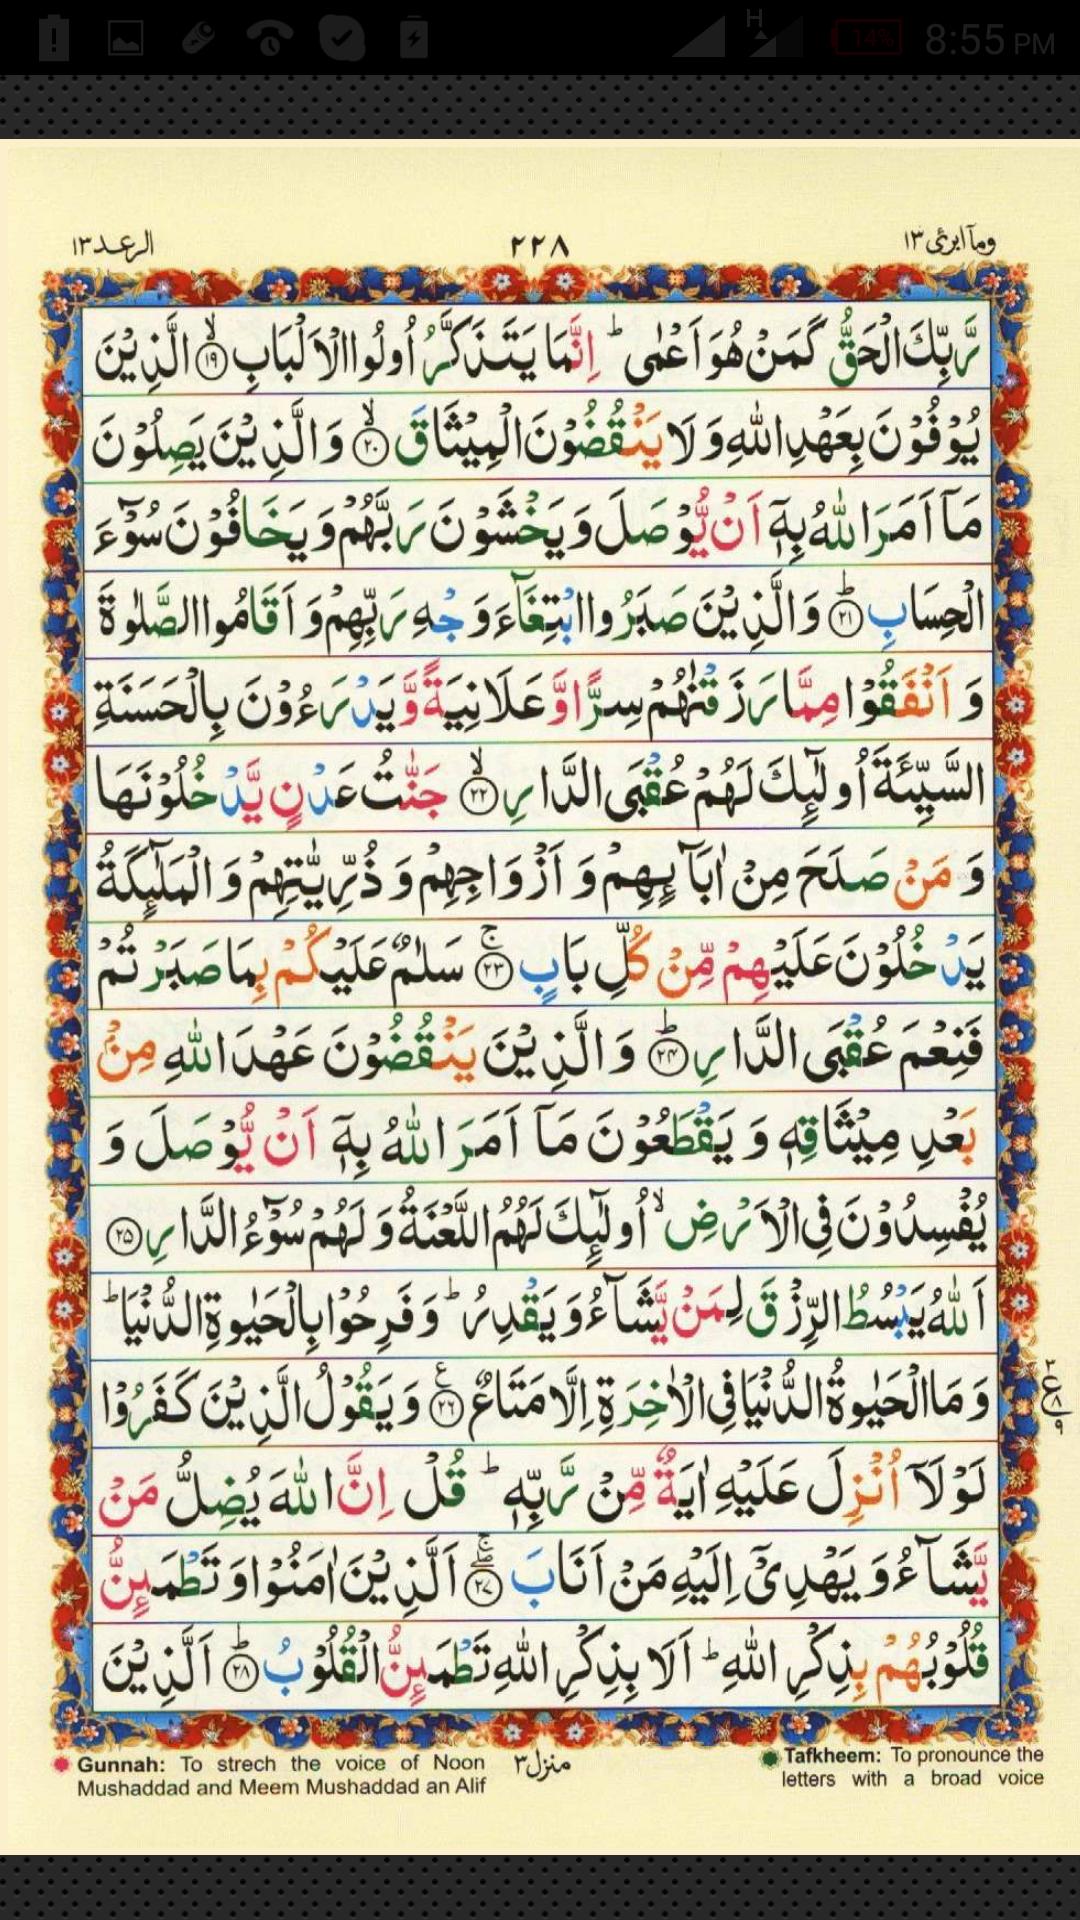 H
14%
8:55 PM
الرعد ١٣
٢٢٨
ومآ ابرئ ١٣
رَّبِّكَ الْحَقُّ كَمَنْ هُوَ اَعْمٰى ؕ اِنَّمَا يَتَذَكَّرُ اُولُوا الْاَلْبَابِ ۙ‏﴿۱۹﴾ الَّذِيْنَ
يُوْفُوْنَ بِعَهْدِ اللّٰهِ وَلَا يَنْقُضُوْنَ الْمِيْثَاقَ ۙ‏﴿۲۰﴾ وَالَّذِيْنَ يَصِلُوْنَ
مَاۤ اَمَرَ اللّٰهُ بِهٖۤ اَنْ يُّوْصَلَ وَيَخْشَوْنَ رَبَّهُمْ وَيَخَافُوْنَ سُوْٓءَ
الْحِسَابِ ؕ‏﴿۲۱﴾ وَالَّذِيْنَ صَبَرُوا ابْتِغَآءَ وَجْهِ رَبِّهِمْ وَ اَقَامُوا الصَّلٰوةَ
وَ اَنْفَقُوْا مِمَّا رَزَقْنٰهُمْ سِرًّا وَّ عَلَانِيَةً وَّ يَدْرَءُوْنَ بِالْحَسَنَةِ
السَّيِّئَةَ اُولٰٓئِكَ لَهُمْ عُقْبَى الدَّارِ ۙ‏﴿۲۲﴾ جَنّٰتُ عَدْنٍ يَّدْخُلُوْنَهَا
وَ مَنْ صَلَحَ مِنْ اٰبَآئِهِمْ وَ اَزْوَاجِهِمْ وَ ذُرِّيّٰتِهِمْ وَ الْمَلٰٓئِكَةُ
يَدْخُلُوْنَ عَلَيْهِمْ مِّنْ كُلِّ بَابٍ ۚ‏﴿۲۳﴾ سَلٰمٌ عَلَيْكُمْ بِمَا صَبَرْتُمْ
فَنِعْمَ عُقْبَى الدَّارِ ؕ‏﴿۲۴﴾ وَ الَّذِيْنَ يَنْقُضُوْنَ عَهْدَ اللّٰهِ مِنْۢ
بَعْدِ مِيْثَاقِهٖ وَ يَقْطَعُوْنَ مَاۤ اَمَرَ اللّٰهُ بِهٖۤ اَنْ يُّوْصَلَ وَ
يُفْسِدُوْنَ فِى الْاَرْضِ ۙ اُولٰٓئِكَ لَهُمُ اللَّعْنَةُ وَ لَهُمْ سُوْٓءُ الدَّارِ‏﴿۲۵﴾
اَللّٰهُ يَبْسُطُ الرِّزْقَ لِمَنْ يَّشَآءُ وَ يَقْدِرُ ؕ وَ فَرِحُوْا بِالْحَيٰوةِ الدُّنْيَا ؕ
وَ مَا الْحَيٰوةُ الدُّنْيَا فِى الْاٰخِرَةِ اِلَّا مَتَاعٌ‏﴿۲۶﴾ وَ يَقُوْلُ الَّذِيْنَ كَفَرُوْا
لَوْلَاۤ اُنْزِلَ عَلَيْهِ اٰيَةٌ مِّنْ رَّبِّهٖ ؕ قُلْ اِنَّ اللّٰهَ يُضِلُّ مَنْ
يَّشَآءُ وَ يَهْدِىْۤ اِلَيْهِ مَنْ اَنَابَ ۖۚ‏﴿۲۷﴾ اَلَّذِيْنَ اٰمَنُوْا وَ تَطْمَئِنُّ
قُلُوْبُهُمْ بِذِكْرِ اللّٰهِ ؕ اَلَا بِذِكْرِ اللّٰهِ تَطْمَئِنُّ الْقُلُوْبُ ؕ‏﴿۲۸﴾ اَلَّذِيْنَ
٣
ع
٨
٩
Gunnah: To strech the voice of Noon
Mushaddad and Meem Mushaddad an Alif
منزل ٣
Tafkheem: To pronounce the
letters with a broad voice